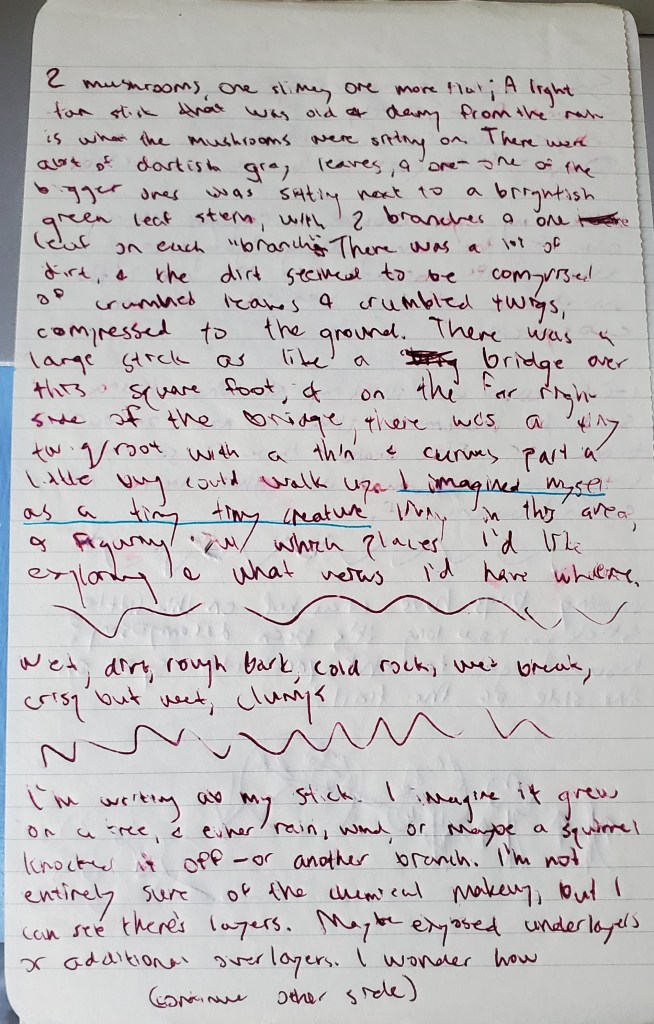 2 mushrooms, one slimey one more flat; A light
tan stick that was old & damp from the rain
is what the mushrooms were sitting on. There were
alot of darkish gray leaves, & one of the
bigger ones was sitting next to a brightish
green leaf stem, with 2 branches & one
leaf on each "branch". There was a lot of
dirt, & the dirt seemed to be comprised
of crumbled leaves & crumbled twigs,
compressed to the ground. There was a
large stick as like a bridge over
this square foot, & on the far right
side of the bridge, there was a tiny
twig/root with a thin & curving part a
little bug could walk up. I imagined myself
as a tiny tiny creature living in this area,
& figuring which places I'd like
exploring & what views I'd have
Wet, dirt, rough bark, cold rock, wet break,
crisp but wet, clumps
I'm writing ab my stick. I imagine it grew
on a tree, & either rain, wind, or maybe a squirrel
knocked it off - or another branch. I'm not
entirely sure of the chemical makeup, but I
can see there's layers. Maybe exposed underlayers
or additional overlayers. I wonder how
(continue other side)